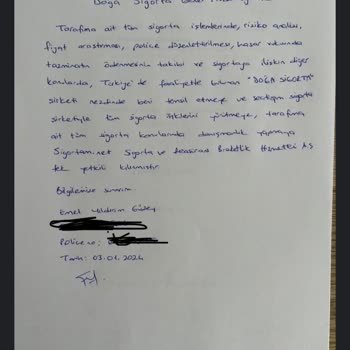 Doğa Sigorta
Tarafıma ait tüm sigorta işlemlerinde, riziko analizi,
fiyat araştırması, poliçe düzenlettirilmesi, hasar anında
tazminatın ödenmesinin takibi ve sigortaya ilişkin diğer
konularda, Türkiye'de faaliyette bulunan "DOĞA SİGORTA"
şirketi nezdinde beni temsil etmeye ve seçtiğim sigorta
şirketiyle tüm sigorta ilişkilerini yürütmeye, tarafıma
ait tüm sigorta konularında danışmanlık yapmaya
Sigortam.net Sigorta ve Reasürans Brokerlik Hizmetleri A.Ş
tek yetkili kılınmıştır.
Bilgilerinize sunarım.
Emel Yıldırım
Poliçe no:
Tarih: 03.01.2024